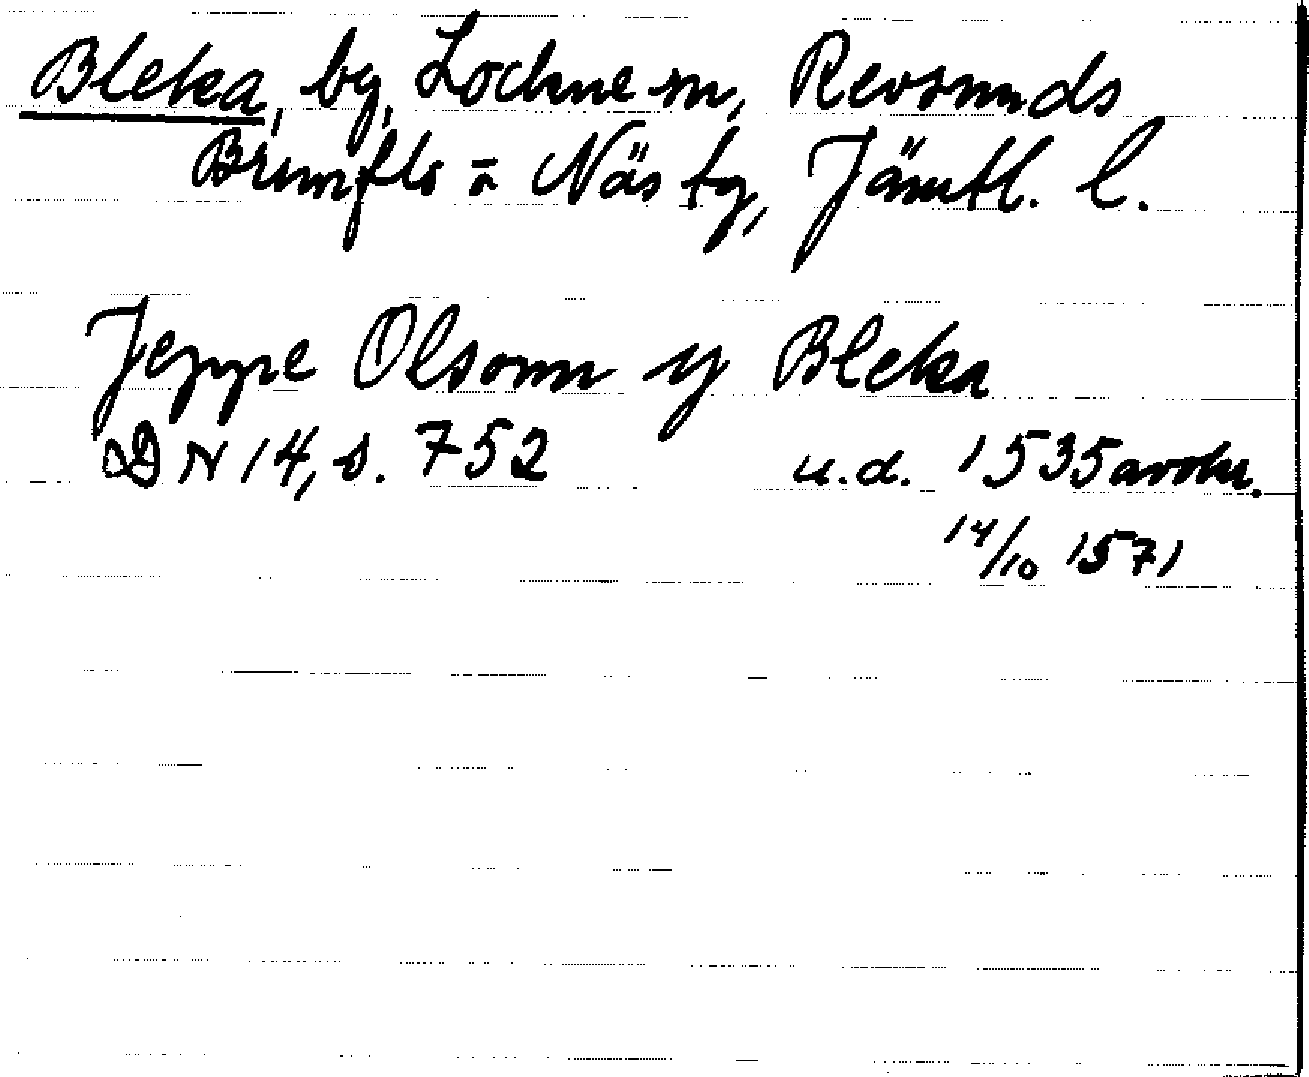 Bleka, by, Lockne sn, Revsunds
Brunflo o Näs tg, Jämtl. l.
Jeppe Olsonn y Bleka
DN 14, s. 752 u.d. 1535 avskr.
14/10 1571